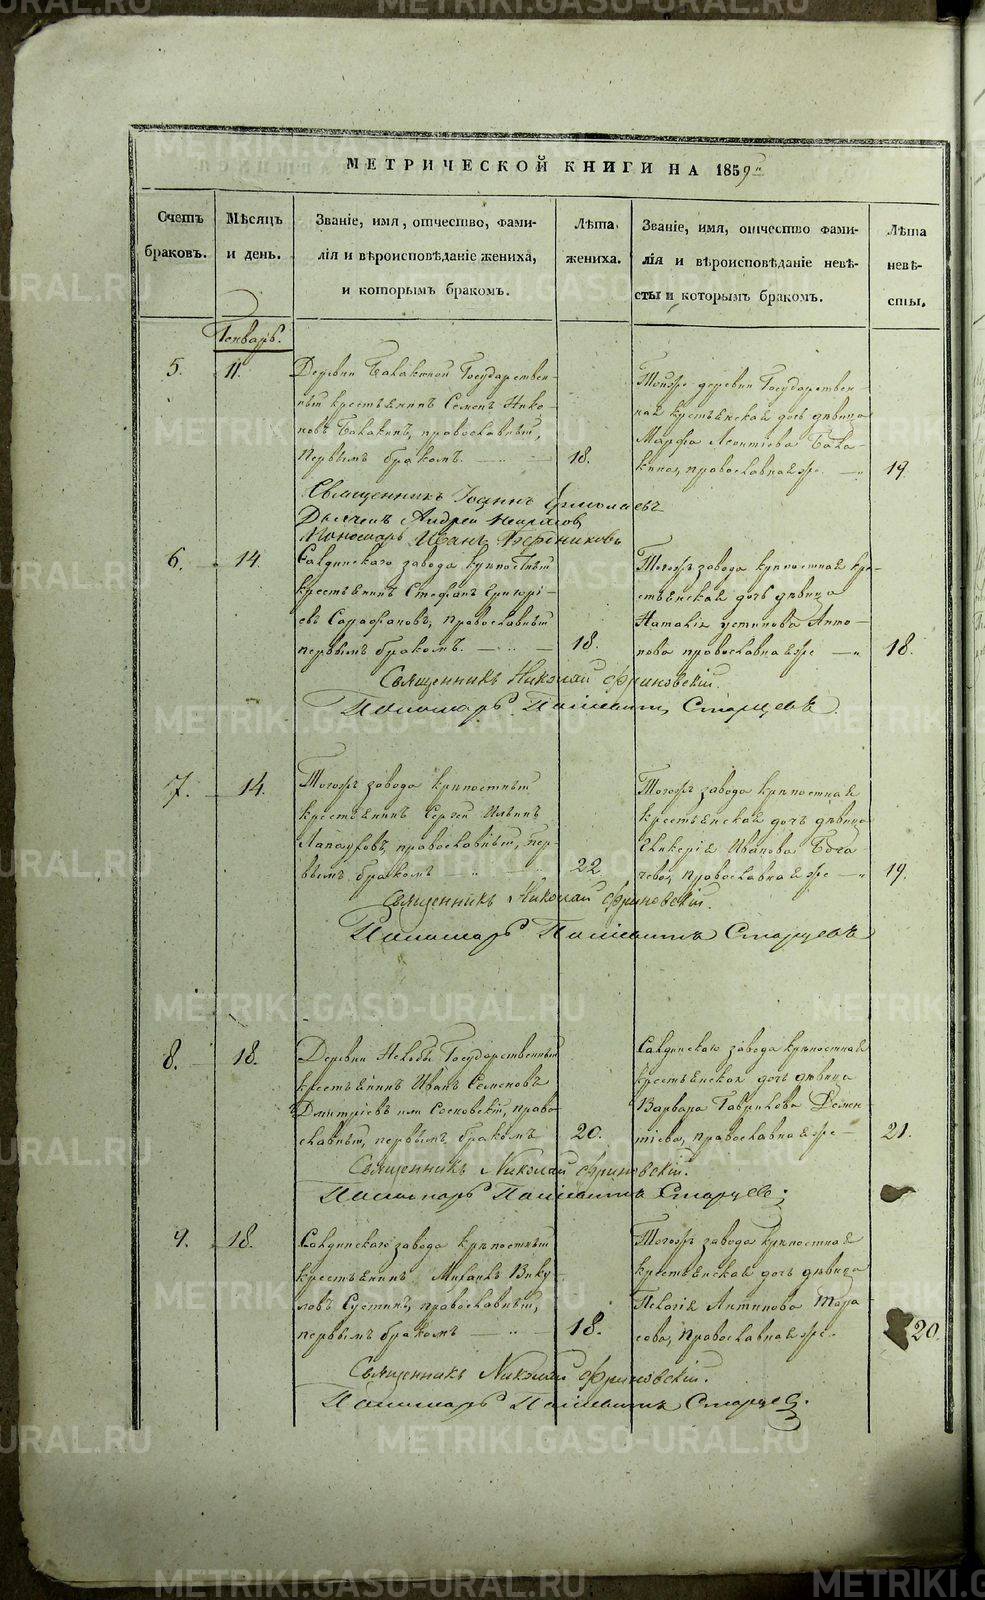 МЕТРИЧЕСКОЙ КНИГИ НА 1859й
Счетъ браковъ.
Мѣсяцъ и день.
Званіе, имя, отчество, фами-
лія и вѣроисповѣданіе жениха,
и которымъ бракомъ.
Лѣта жениха.
Званіе, имя, отчество фами-
лія и вѣроисповѣданіе невѣ-
сты и которымъ бракомъ.
Лѣта невѣ-
сты.
Генварь.
5. 11.
Деревни Балакиной Государствен-
ный крестьянинъ Семенъ Нико-
новъ Балакинъ, православный,
первымъ бракомъ. 18.
Тойже деревни Государствен-
ная крестьянская дочь дѣвица
Марфа Леонтіева Бала-
кина, православная же 19.
Священникъ Іоаннъ Ермолаевъ
Дьячекъ Андрей
Пономарь Иванъ
6. 14.
Салдинскаго завода крѣпостный
крестьянинъ Стефанъ Григорі-
евъ Сарафановъ, православный
первымъ бракомъ. 18.
Тогожъ завода крѣпостная кре-
стьянская дочь дѣвица
Наталія Устинова Анто-
нова православная же 18.
Священникъ Николай Фриновскій.
Пономарь Старцевъ.
7. 14.
Тогожъ завода крѣпостный
крестьянинъ Сергей Ильинъ
православный, пер-
вымъ бракомъ 22.
Тогожъ завода крѣпостная
крестьянская дочь дѣвица
Гликерія Иванова Бога-
чева, православная же 19.
Священникъ Николай Фриновскій.
Пономарь Старцевъ
8. 18.
Деревни Государственный
крестьянинъ Иванъ Семеновъ
Дмитріевъ или Сосновскій, право-
славный, первымъ бракомъ 20.
Салдинскаго завода крѣпостная
крестьянская дочь дѣвица
Варвара Гаврилова Демен-
тіева, православная же 21.
Священникъ Николай Фриновскій.
Пономарь Старцевъ;
9. 18.
Салдинскаго завода крѣпостный
крестьянинъ Михаилъ Вику-
ловъ православный,
первымъ бракомъ 18.
Тогожъ завода крѣпостная
крестьянская дочь дѣвица
Пелагія Антипова Тара-
сова, православная же. 20.
Священникъ Николай Фриновскій.
Пономарь Старцевъ.
METRIKI.GASO-URAL.RU